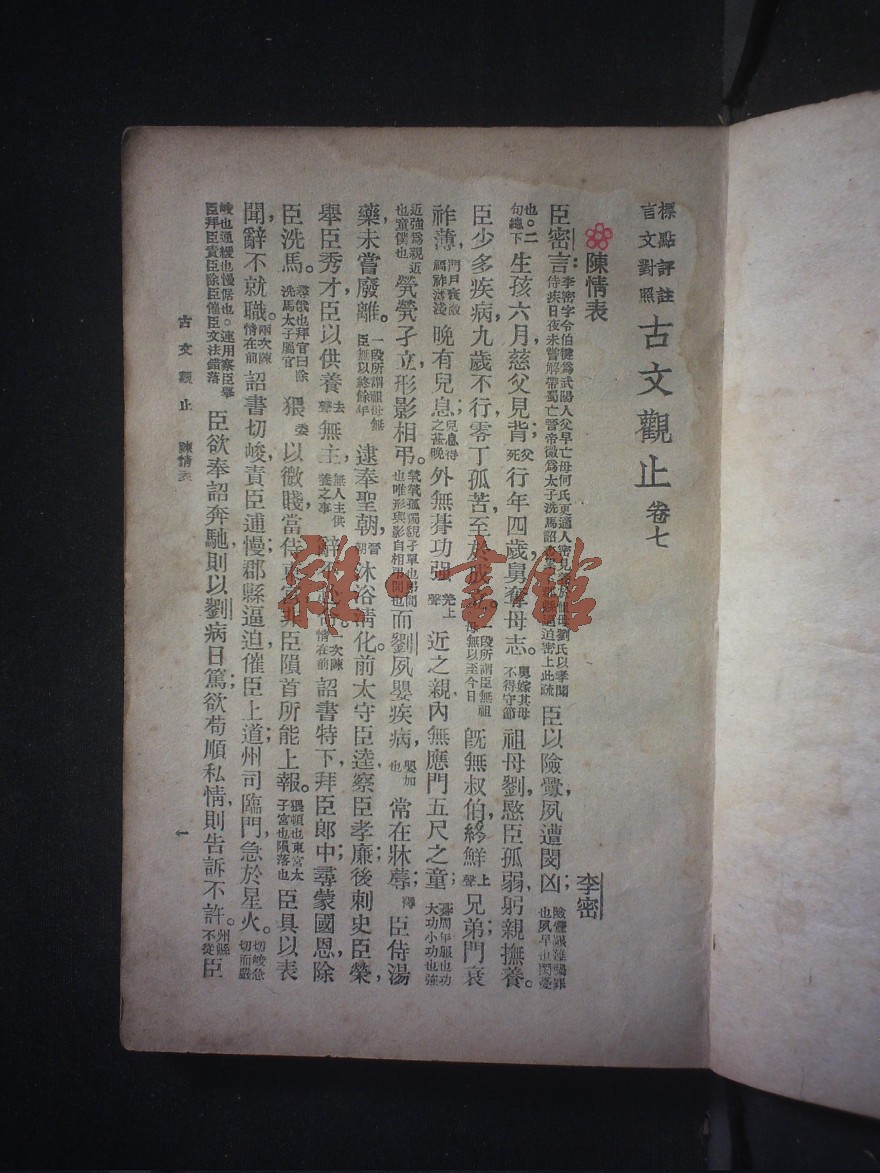 標點評註
言文對照
古文觀止 卷七
陳情表
李密
臣密言：李密字令伯犍爲武陽人父早亡母何氏更適人密見養於祖母劉氏以孝聞
侍疾日夜未嘗解帶蜀亡晉帝徵爲太子洗馬詔 逼迫密上此疏 臣以險釁，夙遭閔凶；險釁艱難禍罪
也夙早也閔憂
也。二
句總下 生孩六月，慈父見背；父
死 行年四歲，舅奪母志。舅嫁其母
不得守節 祖母劉，愍臣孤弱，躬親撫養。
臣少多疾病，九歲不行，零丁孤苦，至於成立。一段所謂臣無祖
母無以至今日 旣無叔伯，終鮮上
聲 兄弟；門衰
祚薄，門戶衰微
福祚淺薄 晚有兒息；兒息得
之甚晚 外無朞功强羌上
聲 近之親，內無應門五尺之童；朞周年服也功
大功小功也強
近強爲親近
也童僕也 煢煢孑立，形影相弔。煢煢孤獨貌孑單也弔問
也唯形與影自相弔問也 而劉夙嬰疾病，嬰加
也 常在牀蓐；臣侍湯
藥，未嘗廢離。一段所謂祖母無
臣無以終餘年 逮奉聖朝，晉
朝 沐浴淸化。前太守臣逵，察臣孝廉；後刺史臣榮，
舉臣秀才。臣以供養去
聲 無主，無人主供
養之事 辭不赴命。一次陳
情在前 詔書特下，拜臣郎中；尋蒙國恩，除
臣洗馬。尋俄也拜官曰除
洗馬太子屬官 猥委 以微賤，當侍東宮，非臣隕首所能上報。猥頓也東宮太
子宮也隕落也 臣具以表
聞，辭不就職。兩次陳
情在前 詔書切峻，責臣逋慢；郡縣逼迫，催臣上道；州司臨門，急於星火。切峻急
切而嚴
峻也逋緩也慢倨也。連用察臣舉
臣拜臣責臣除臣催臣文法錯落 臣欲奉詔奔馳，則以劉病日篤；欲苟順私情，則告訴不許。州縣
不從 臣
古文觀止 陳情表
一
雜·書館